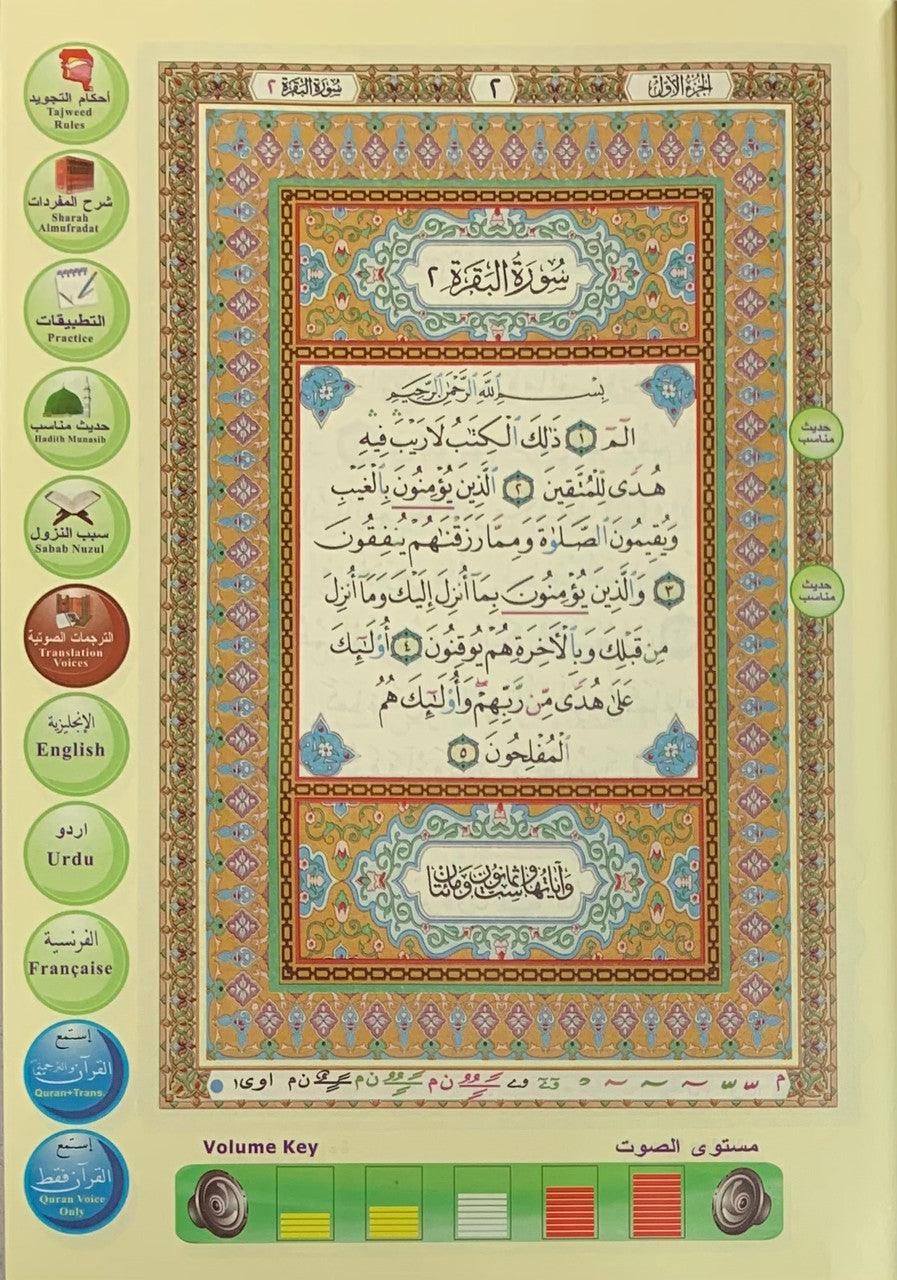 الجزء الأول
٢
سورة البقرة ٢
سُورَةُ البَقَرَةِ ٢
بِسْمِ ٱللَّهِ ٱلرَّحْمَٰنِ ٱلرَّحِيمِ
الٓمٓ ١ ذَٰلِكَ ٱلْكِتَٰبُ لَا رَيْبَ ۛ فِيهِ ۛ
هُدًى لِّلْمُتَّقِينَ ٢ ٱلَّذِينَ يُؤْمِنُونَ بِٱلْغَيْبِ
وَيُقِيمُونَ ٱلصَّلَوٰةَ وَمِمَّا رَزَقْنَٰهُمْ يُنفِقُونَ
٣ وَٱلَّذِينَ يُؤْمِنُونَ بِمَآ أُنزِلَ إِلَيْكَ وَمَآ أُنزِلَ
مِن قَبْلِكَ وَبِٱلْءَاخِرَةِ هُمْ يُوقِنُونَ ٤ أُو۟لَٰٓئِكَ
عَلَىٰ هُدًى مِّن رَّبِّهِمْ ۖ وَأُو۟لَٰٓئِكَ هُمُ
ٱلْمُفْلِحُونَ ٥
وَآيَاتُهَا سِتٌّ وَثَمَانُونَ وَمِائَتَانِ
حديث
مناسب
حديث
مناسب
أحكام التجويد
Tajweed
Rules
شرح المفردات
Sharah
Almufradat
التطبيقات
Practice
حديث مناسب
Hadith Munasib
سبب النزول
Sabab Nuzul
الترجمات الصوتية
Translation
Voices
الإنجليزية
English
اردو
Urdu
الفرنسية
Française
إستمع
القرآن والترجمة
Quran+Trans.
إستمع
القرآن فقط
Quran Voice
Only
Volume Key
مستوى الصوت